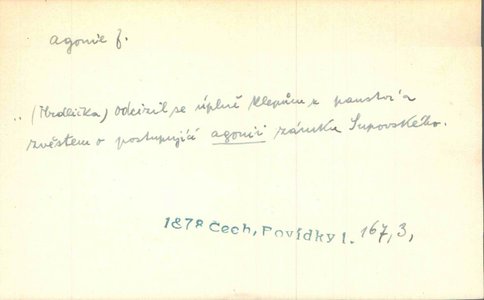 agonie f.
„ (Hrdlička) odcizil se úplně klepům z panství a
zvěstem o postupující agonii zámku Supovského.
1878 Čech, Povídky 1. 167, 3,